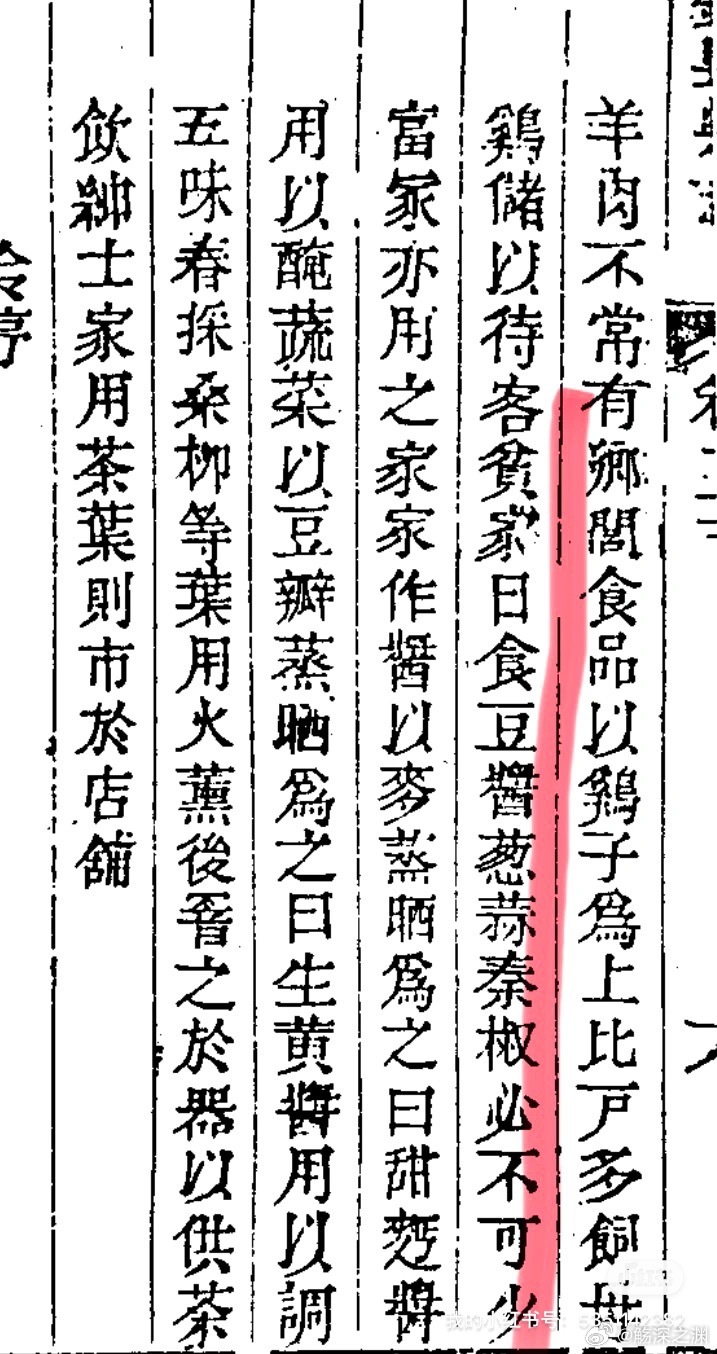 羊肉不常有鄉閭食品以鷄子爲上比戶多飼母
鷄儲以待客貧家日食豆醬葱蒜秦椒必不可少
富家亦用之家家作醬以麥蒸晒爲之曰甜麪醬
用以醃蔬菜以豆瓣蒸晒爲之曰生黄醬用以調
五味春採桑柳等葉用火薰後畜之於器以供茶
飲紳士家用茶葉則市於店舖
我的小红书号:
@畅深之渊